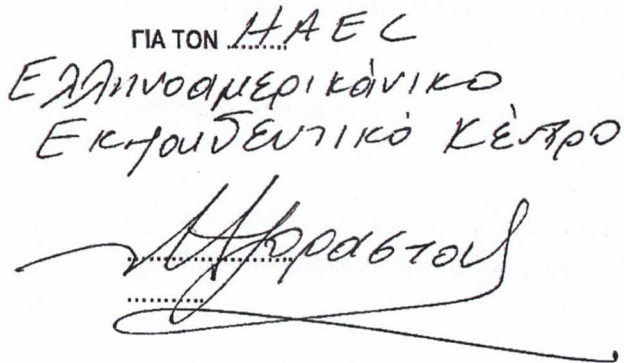 ΓΙΑ ΤΟΝ HAEC
Ελληνοαμερικάνικο
Εκπαιδευτικό Κέντρο